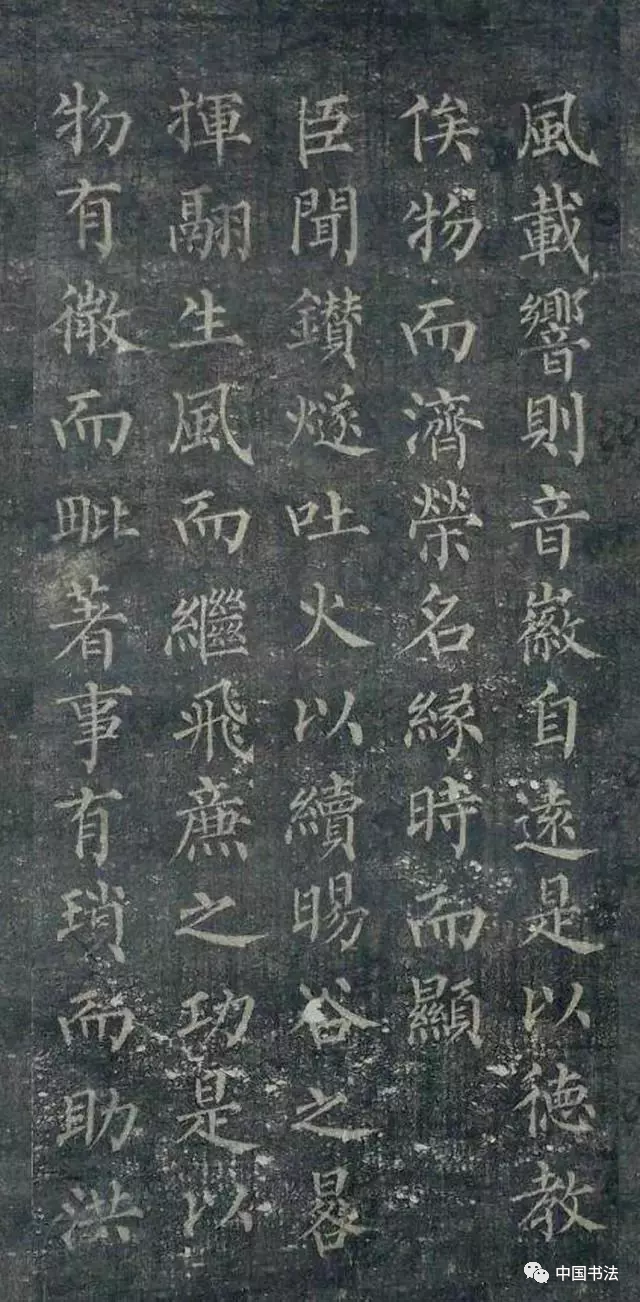 風載響則音徽自遠是以德教
俟物而濟榮名緣時而顯
臣聞鑚燧吐火以續暘谷之晷
揮翮生風而繼飛廉之功是以
物有微而毗著事有瑣而助洪
中国书法